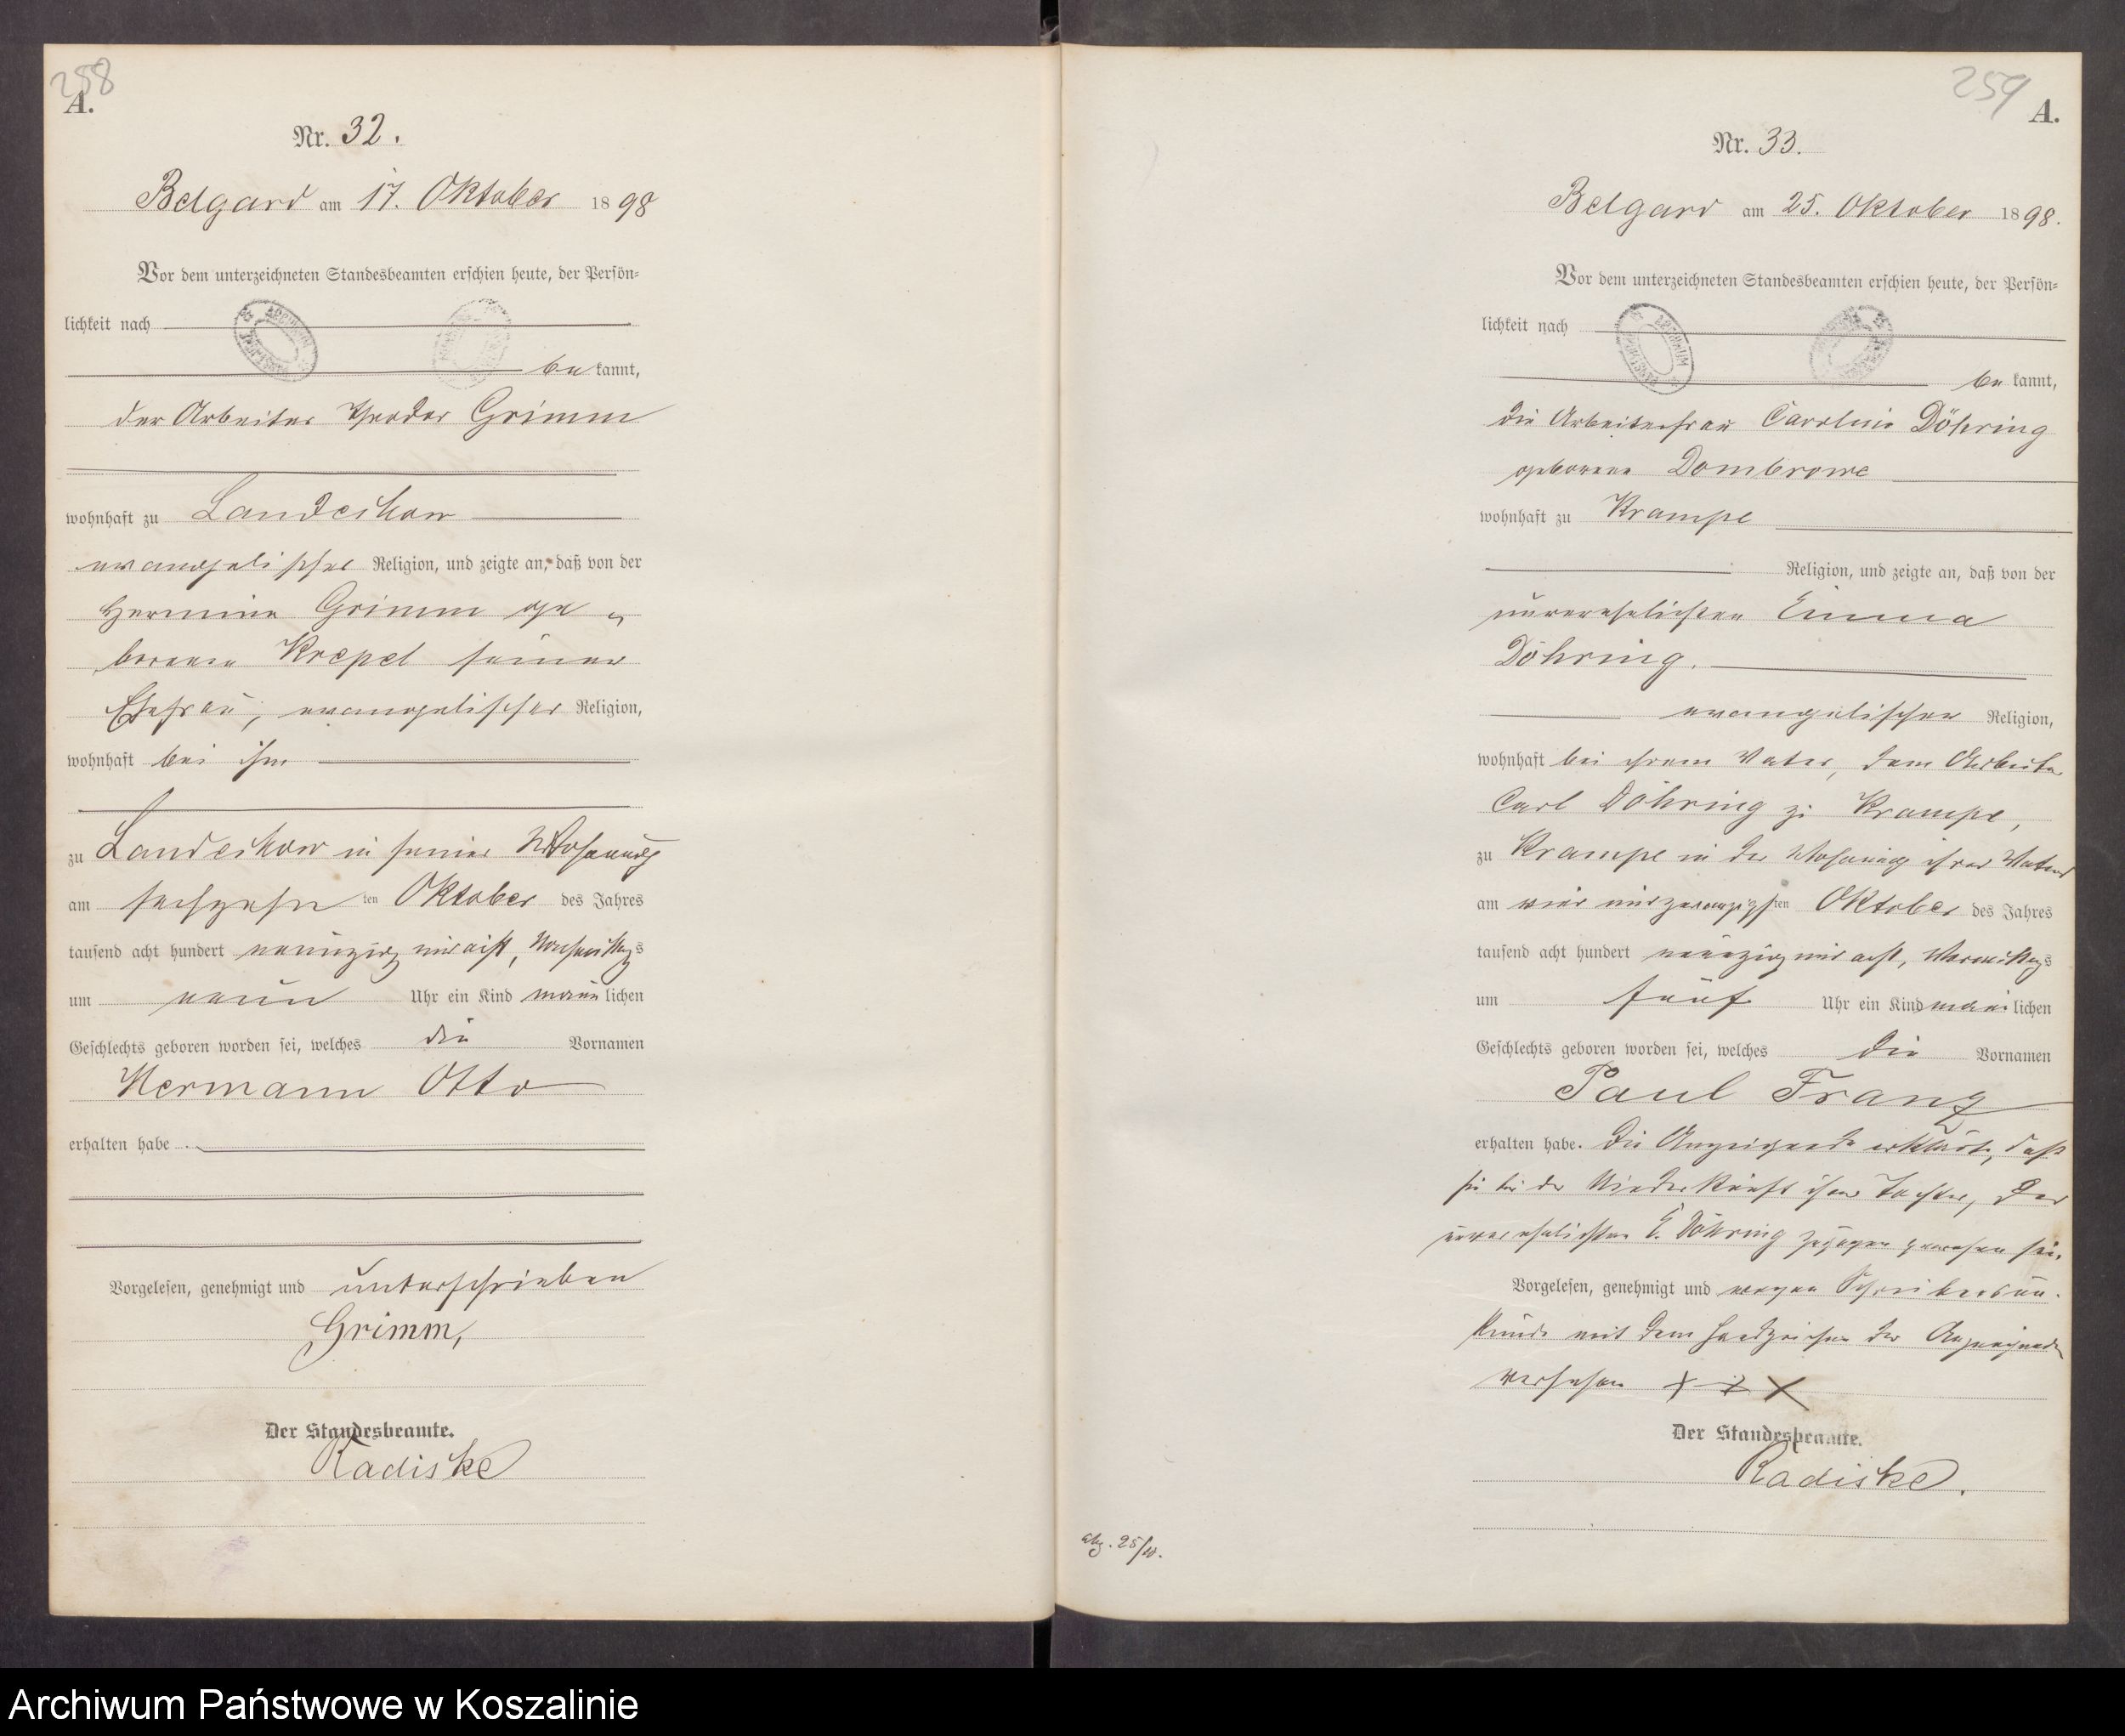 258
A.
Nr. 32.
Belgard am 17. Oktober 1898
Vor dem unterzeichneten Standesbeamten erschien heute, der Persön-
lichkeit nach
bekannt,
der Arbeiter Theodor Grimm
wohnhaft zu Landechow
evangelischer Religion, und zeigte an, daß von der
Hermine Grimm ge-
borenen Krepel seiner
Ehefrau, evangelischer Religion,
wohnhaft bei ihm
zu Landechow in seiner Wohnung
am sechszehnten Oktober des Jahres
tausend acht hundert neunzig und acht, Nachmittags
um neun Uhr ein Kind männlichen
Geschlechts geboren worden sei, welches die Vornamen
Hermann Otto
erhalten habe.
Vorgelesen, genehmigt und unterschrieben
Grimm,
Der Standesbeamte.
Radiske
259
A.
Nr. 33.
Belgard am 25. Oktober 1898.
Vor dem unterzeichneten Standesbeamten erschien heute, der Persön-
lichkeit nach
bekannt,
die Arbeiterfrau Caroline Döhring
geborene Dombrowe
wohnhaft zu Krampe
Religion, und zeigte an, daß von der
unverehelichten Emma
Döhring.
evangelischer Religion,
wohnhaft bei ihrem Vater, dem Arbeiter
Carl Döhring zu Krampe,
zu Krampe in der Wohnung ihres Vaters
am vier und zwanzigsten Oktober des Jahres
tausend acht hundert neunzig und acht, Vormittags
um fünf Uhr ein Kind männlichen
Geschlechts geboren worden sei, welches die Vornamen
Paul Franz
erhalten habe. Die Anzeigende erklärte, daß
sie bei der Niederkunft ihrer Tochter, der
unverehelichten E. Döhring zugegen gewesen sei.
Vorgelesen, genehmigt und wegen Schreibensun-
kunde mit dem Handzeichen der Anzeigenden
versehen + + +
Der Standesbeamte.
Radiske.
25/10.
Archiwum Państwowe w Koszalinie